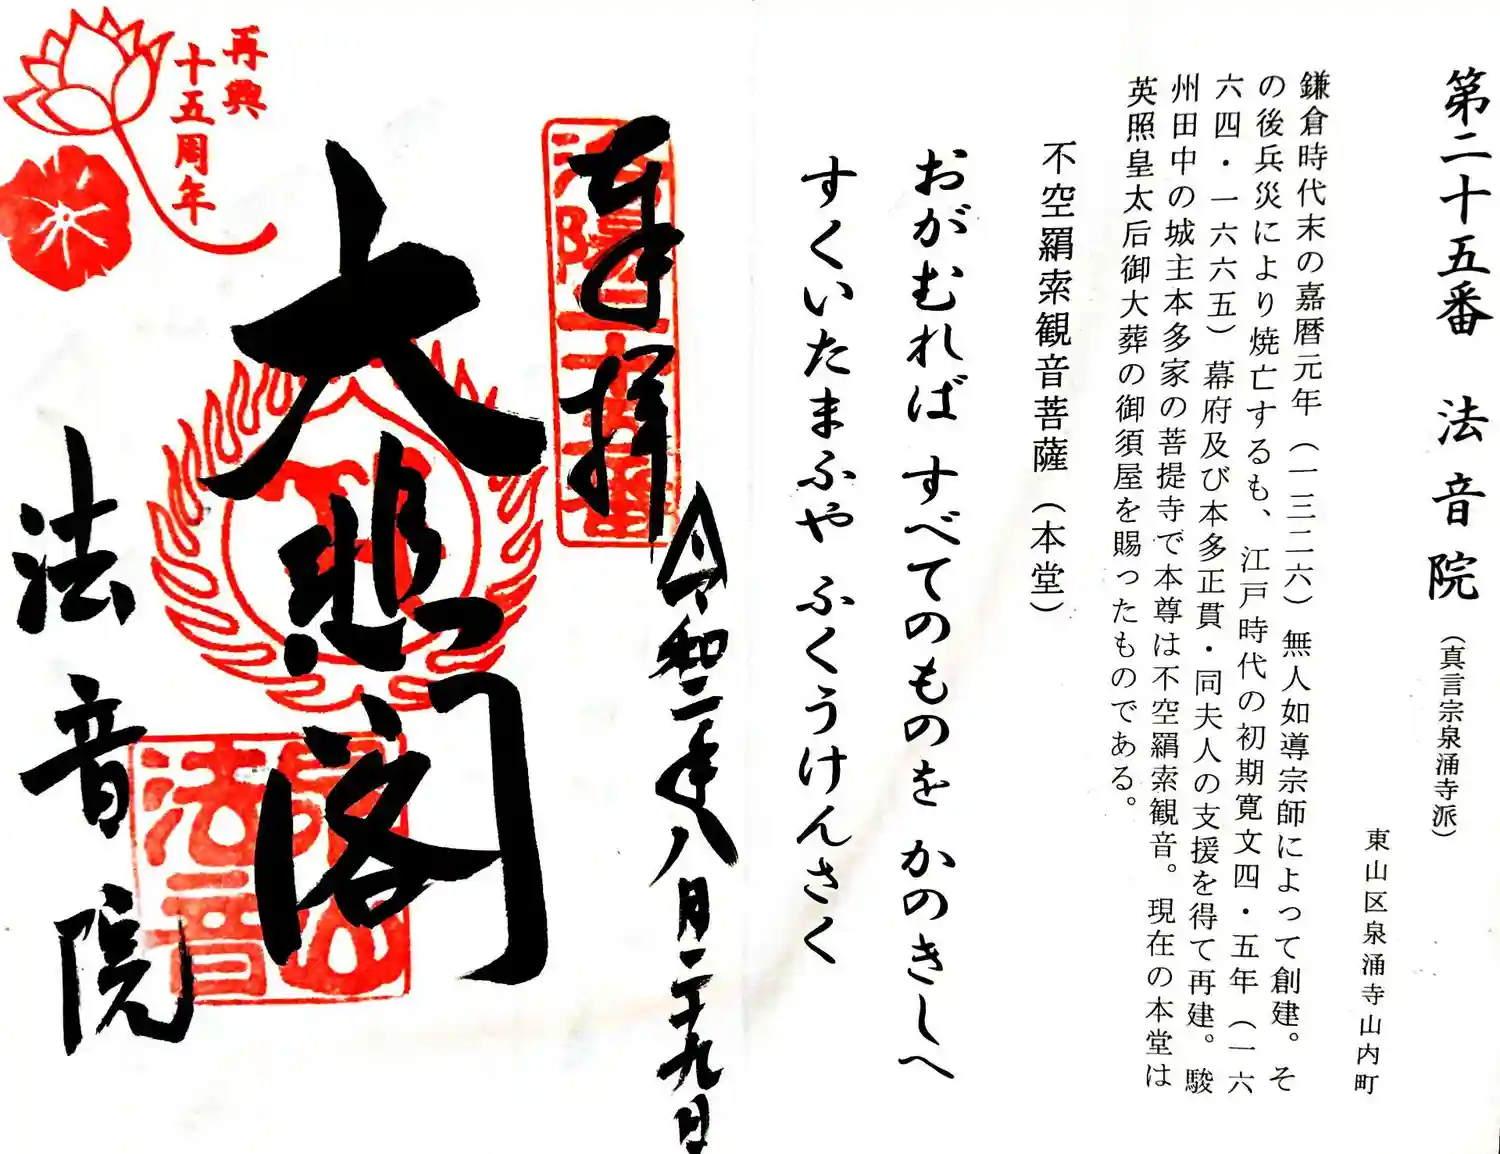 第二十五番　法音院（真言宗泉涌寺派）
東山区泉涌寺山内町
鎌倉時代末の嘉暦元年（一三二六）無人如導宗師によって創建。そ
の後兵災により焼亡するも、江戸時代の初期寛文四・五年（一六
六四・一六六五）幕府及び本多正貫・同夫人の支援を得て再建。駿
州田中の城主本多家の菩提寺で本尊は不空羂索観音。現在の本堂は
英照皇太后御大葬の御須屋を賜ったものである。
不空羂索観音菩薩（本堂）
おがむれば すべてのものを かのきしへ
すくいたまふや ふくうけんさく
奉拝
令和二年八月二十九日
大悲閣
法音院
再興
十五周年